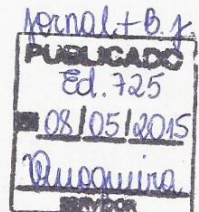 Jornal + B. J.
PUBLICADO
Ed. 725
08/05/2015
SERVIDOR